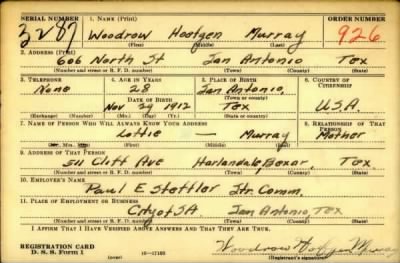 SERIAL NUMBER 1. NAME (Print) ORDER NUMBER
3287 Woodrow Hootgen Murray 926
(First) (Middle) (Last)
2. ADDRESS (Print)
606 North St San Antonio Tex
(Number and street or R. F. D. number) (Town) (County) (State)
3. TELEPHONE 4. AGE IN YEARS 5. PLACE OF BIRTH 6. COUNTRY OF CITIZENSHIP
None 28 San Antonio,
DATE OF BIRTH (Town or county)
Nov 29 1912 Tex U.S.A.
(Exchange) (Number) (Mo.) (Day) (Yr.) (State or country)
7. NAME OF PERSON WHO WILL ALWAYS KNOW YOUR ADDRESS 8. RELATIONSHIP OF THAT PERSON
Lottie — Murray Mother
(Mr., Mrs., Miss) (First) (Middle) (Last)
9. ADDRESS OF THAT PERSON
511 Cliff Ave Harlandale, Bexar, Tex
(Number and street or R. F. D. number) (Town) (County) (State)
10. EMPLOYER'S NAME
Paul E Steffler Str. Comm.
11. PLACE OF EMPLOYMENT OR BUSINESS
City of S A San Antonio, Tex
(Number and street or R. F. D. number) (Town) (County) (State)
I AFFIRM THAT I HAVE VERIFIED ABOVE ANSWERS AND THAT THEY ARE TRUE.
REGISTRATION CARD
D. S. S. Form 1 (over) Woodrow Murray
(Registrant's signature)